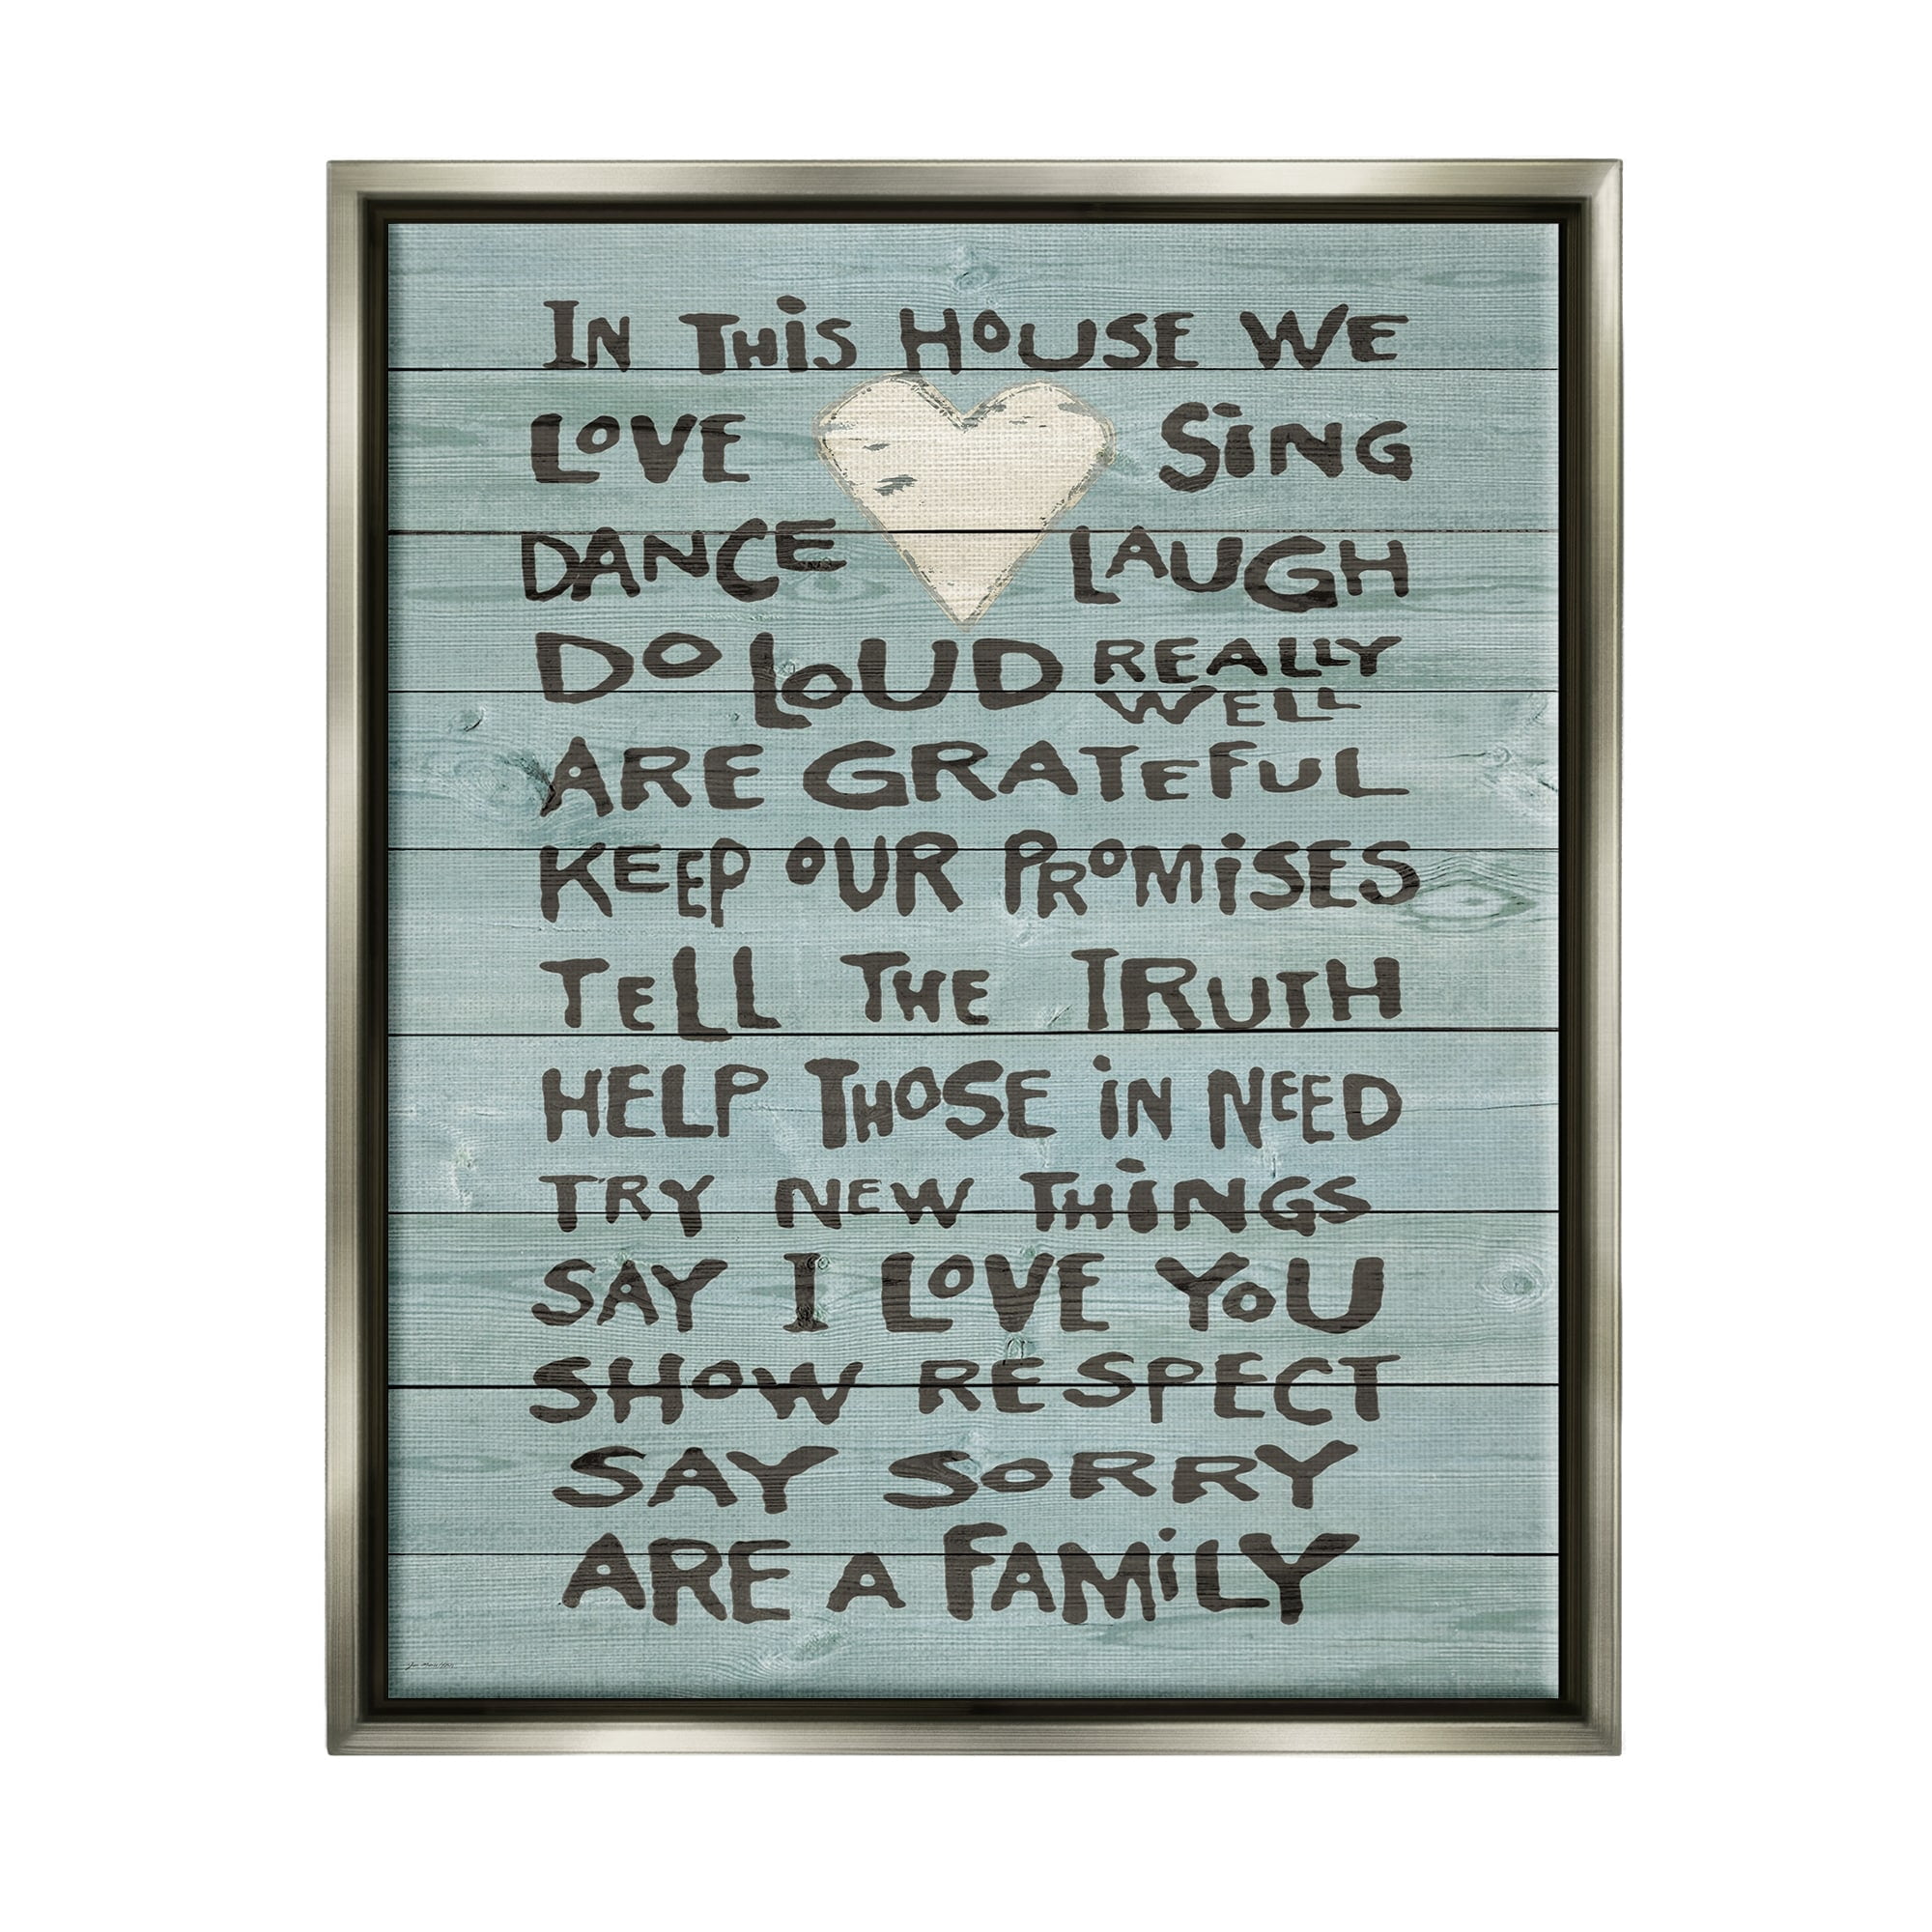 IN THiS HOUSE WE
LOVE SiNG
DANCE LAUGH
DO LOUD REALLY
WELL
ARE GRATEFUL
KEEP OUR PROMiSES
TELL THE TRUTH
HELP THOSE iN NEED
TRY NEW THiNGS
SAY I LOVE YOU
SHOW RESPECT
SAY SORRY
ARE A FAMiLY